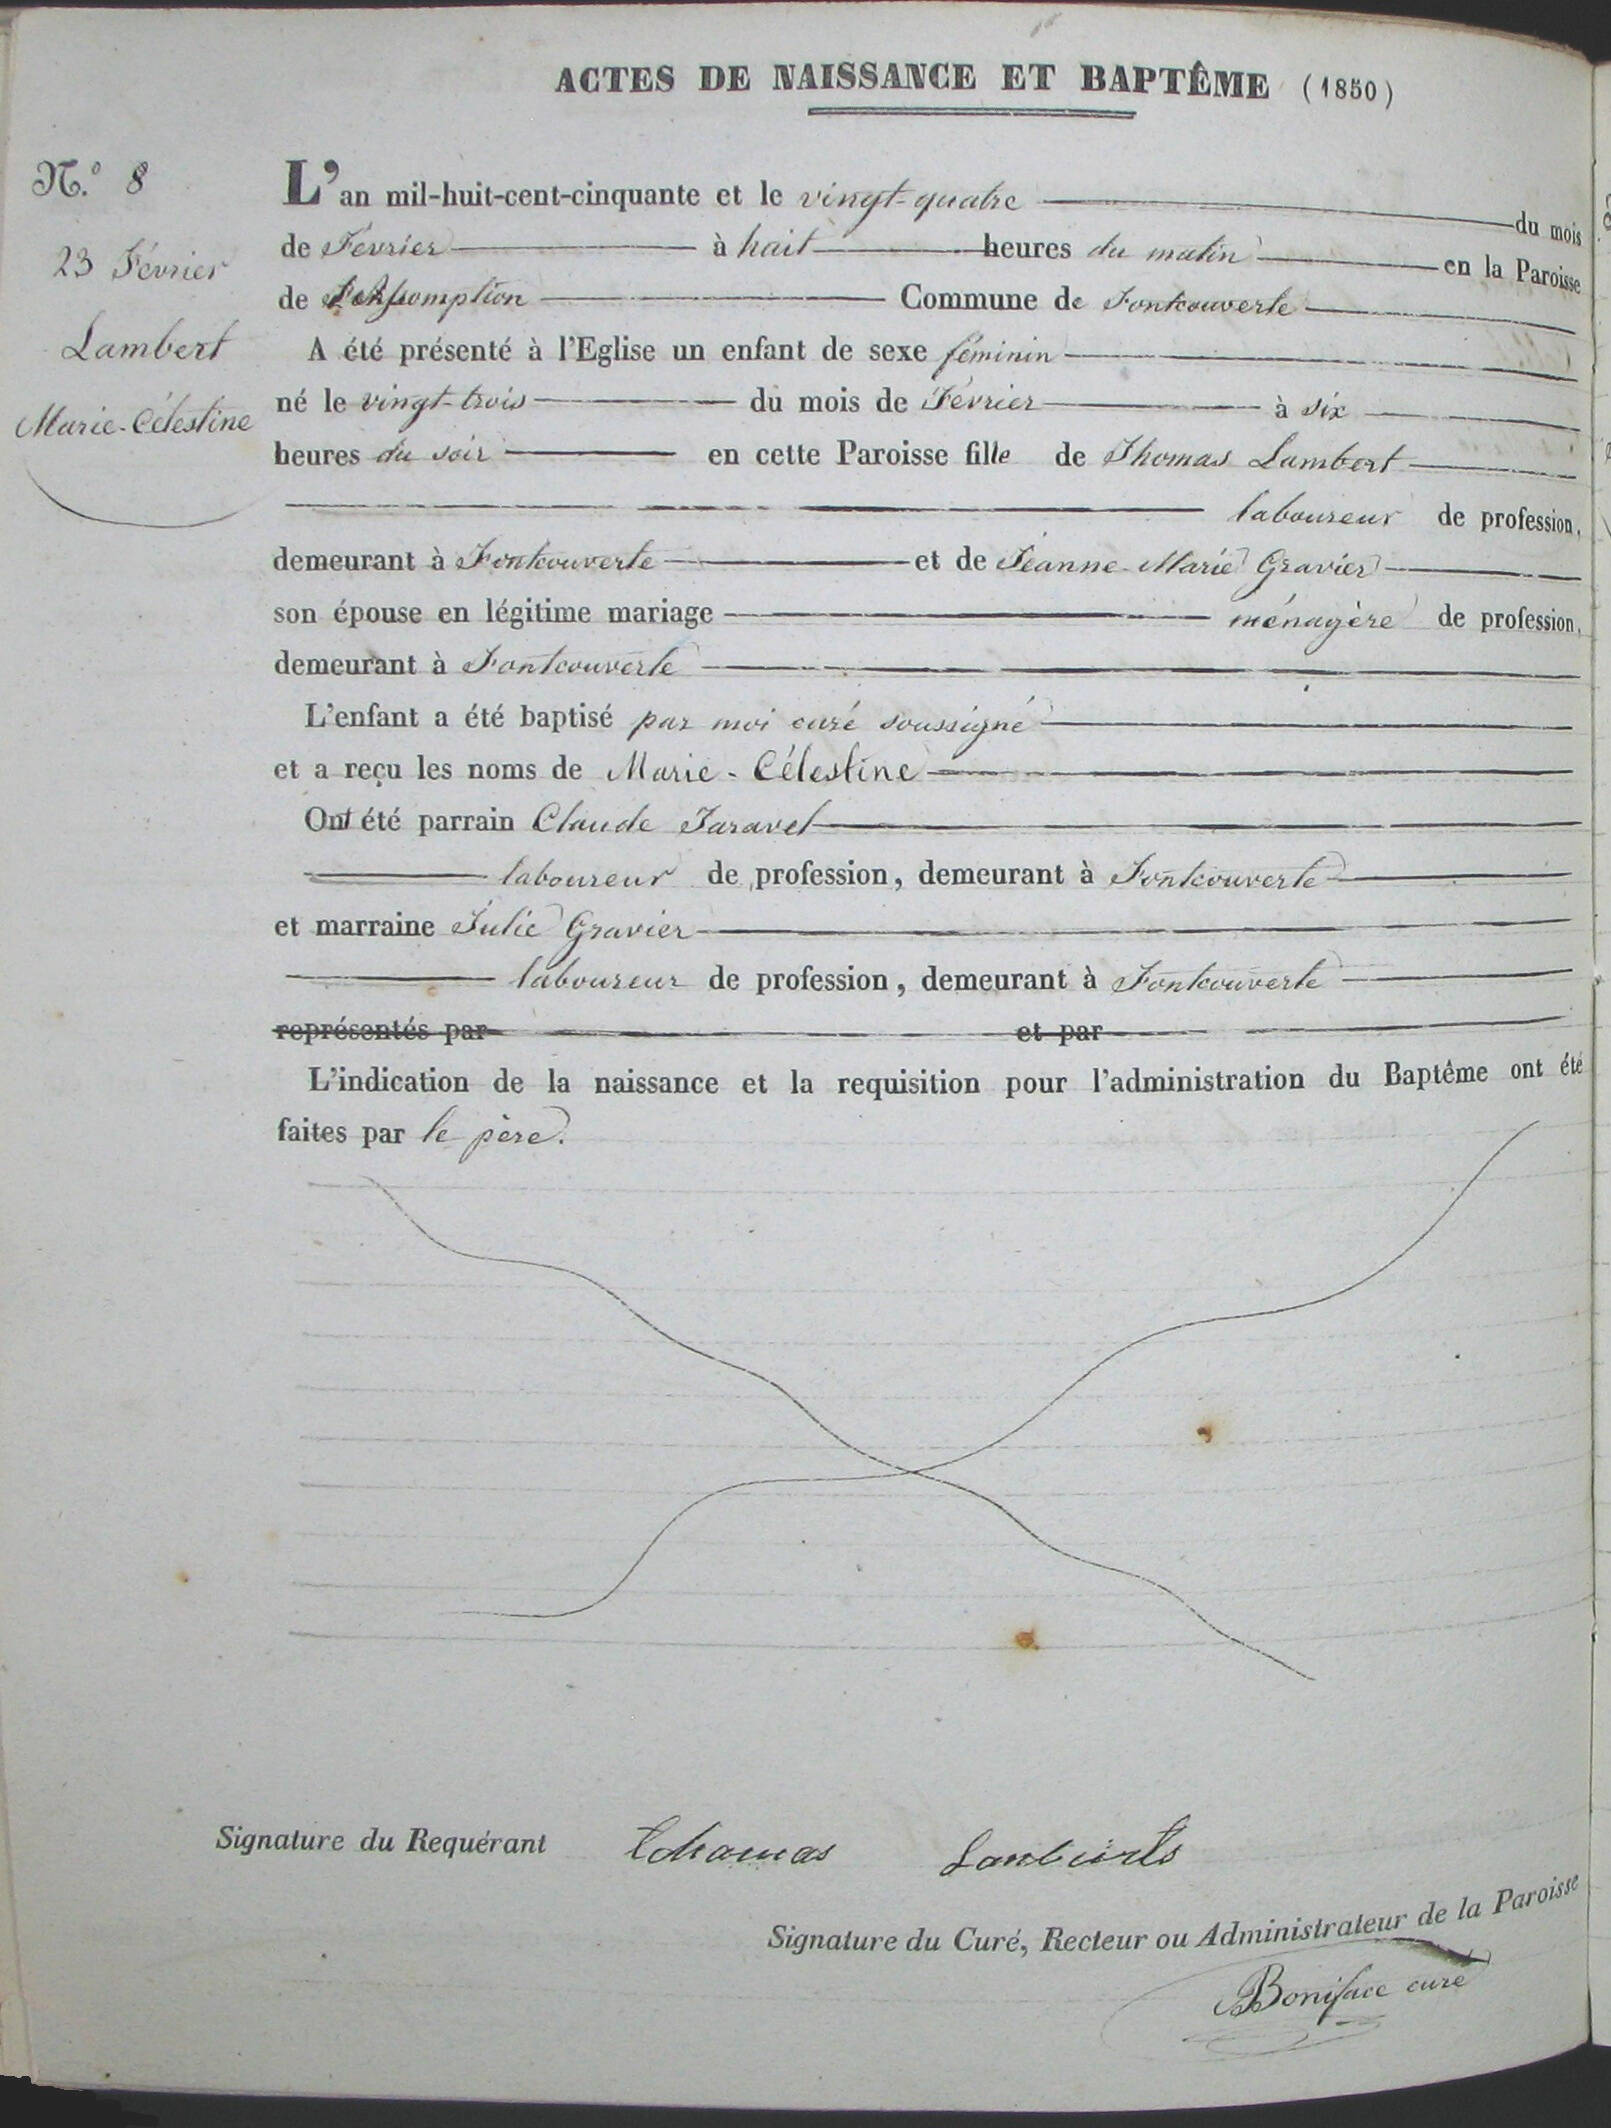 ACTES DE NAISSANCE ET BAPTÊME (1850)
N.º 8
23 Février
Lambert
Marie-Célestine
L'an mil-huit-cent-cinquante et le vingt-quatre du mois
de Février à huit heures du matin en la Paroisse
de l'Assomption Commune de Fontcouverte
A été présenté à l'Eglise un enfant de sexe féminin
né le vingt-trois du mois de Février à six
heures du soir en cette Paroisse fille de Thomas Lambert
laboureur de profession,
demeurant à Fontcouverte et de Jeanne-Marie Gravier
son épouse en légitime mariage ménagère de profession,
demeurant à Fontcouverte
L'enfant a été baptisé par moi curé soussigné
et a reçu les noms de Marie-Célestine
Ont été parrain Claude Taravel
laboureur de profession, demeurant à Fontcouverte
et marraine Julie Gravier
laboureur de profession, demeurant à Fontcouverte
représentés par et par
L'indication de la naissance et la requisition pour l'administration du Baptême ont été
faites par le père.
Signature du Requérant Thomas
Signature du Curé, Recteur ou Administrateur de la Paroisse
Boniface curé